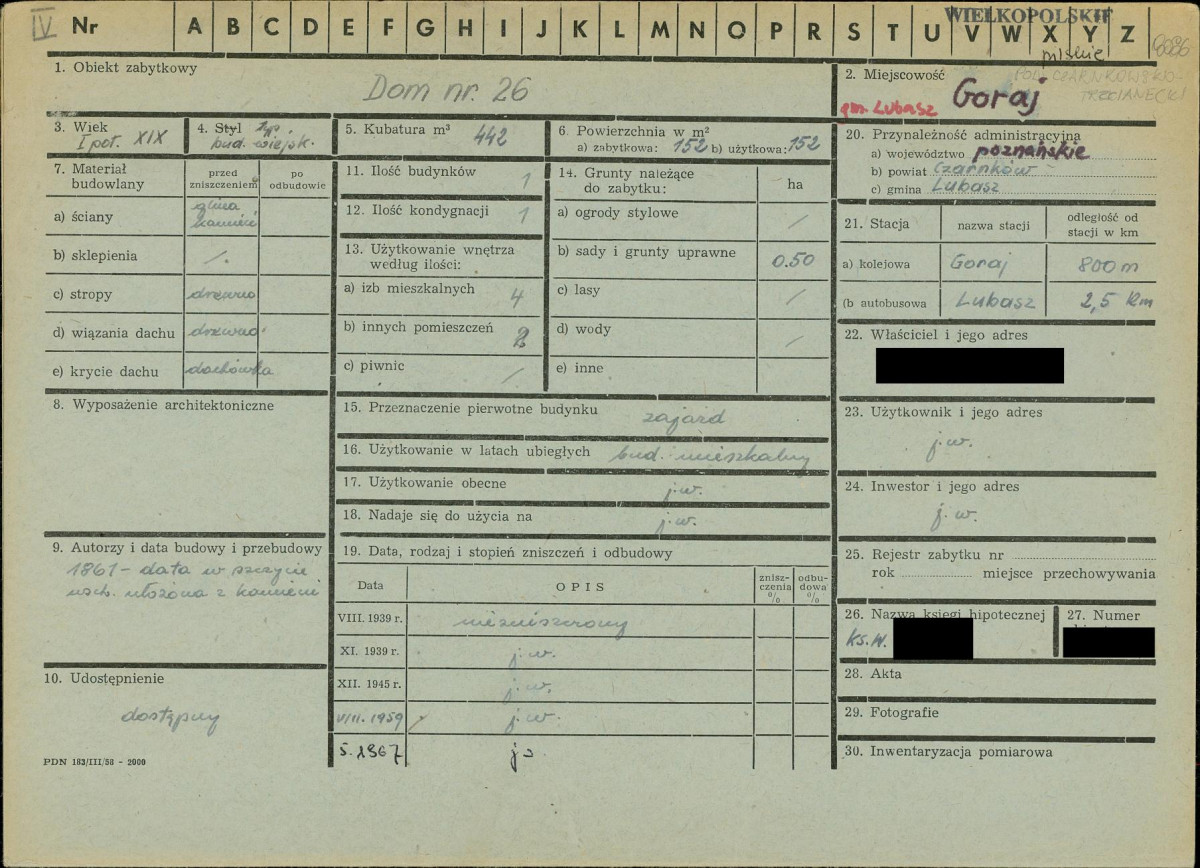 IV Nr A B C D E F G H I J K L M N O P R S T U V W X Y Z
WIELKOPOLSKIE
pilskie
8086
POW. CZARNKOWSKO-
TRZCIANECKI
1. Obiekt zabytkowy
Dom nr. 26
2. Miejscowość
gm. Lubasz Goraj
3. Wiek
I poł. XIX
4. Styl typ.
bud. wiejsk.
5. Kubatura m³ 442
6. Powierzchnia w m²
a) zabytkowa: 152 b) użytkowa: 152
20. Przynależność administracyjna
a) województwo poznańskie
b) powiat Czarnków
c) gmina Lubasz
7. Materiał budowlany
przed zniszczeniem
po odbudowie
a) ściany glina kamień
b) sklepienia /.
c) stropy drzewo
d) wiązania dachu drzewo
e) krycie dachu dachówka
11. Ilość budynków 1
12. Ilość kondygnacji 1
13. Użytkowanie wnętrza
według ilości:
a) izb mieszkalnych 4
b) innych pomieszczeń
c) piwnic /
14. Grunty należące
do zabytku: ha
a) ogrody stylowe /
b) sady i grunty uprawne 0.50
c) lasy /
d) wody /
e) inne
21. Stacja nazwa stacji odległość od
stacji w km
a) kolejowa Goraj 800 m
(b autobusowa Lubasz 2,5 km
22. Właściciel i jego adres
8. Wyposażenie architektoniczne
15. Przeznaczenie pierwotne budynku zajazd
16. Użytkowanie w latach ubiegłych bud. mieszkalny
17. Użytkowanie obecne j.w.
18. Nadaje się do użycia na j.w.
23. Użytkownik i jego adres
j.w.
24. Inwestor i jego adres
j.w.
9. Autorzy i data budowy i przebudowy
1861 - data w szczycie
wsch. ułożona z kamieni
19. Data, rodzaj i stopień zniszczeń i odbudowy
Data OPIS znisz-czenia % odbu-dowa %
VIII. 1939 r. niezniszczony
XI. 1939 r. j.w.
XII. 1945 r. j.w.
VIII. 1959 j.w.
5. 1967 j.
25. Rejestr zabytku nr
rok miejsce przechowywania
26. Nazwa księgi hipotecznej
Ks.W.
27. Numer
28. Akta
29. Fotografie
30. Inwentaryzacja pomiarowa
10. Udostępnienie
dostępny
PDN 183/III/58 - 2000